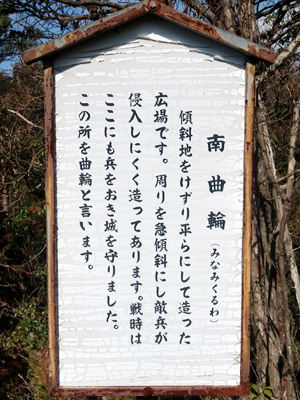 南曲輪
(みなみくるわ)
傾斜地をけずり平らにして造った
広場です。周りを急傾斜にし敵兵が
侵入しにくく造ってあります。戦時は
ここにも兵をおき城を守りました。
この所を曲輪と言います。